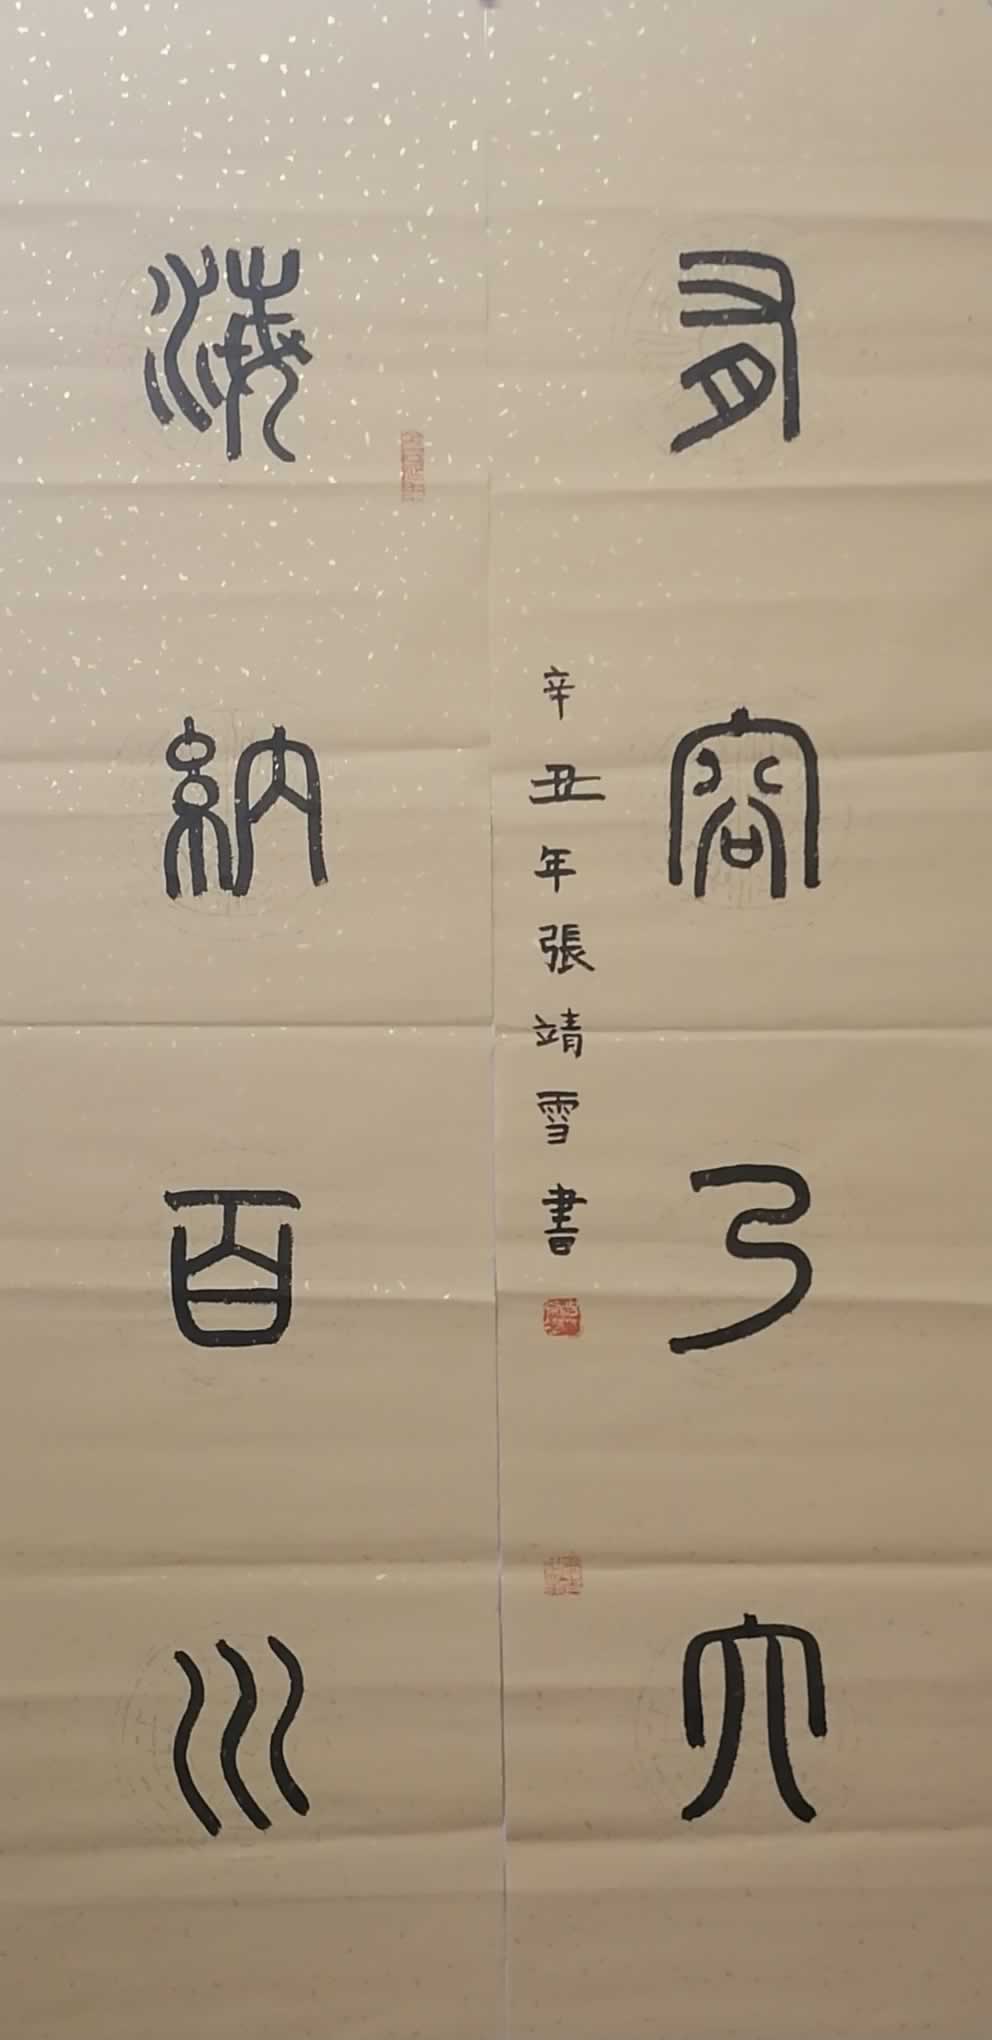 海納百川
有容乃大
辛丑年張靖雪書